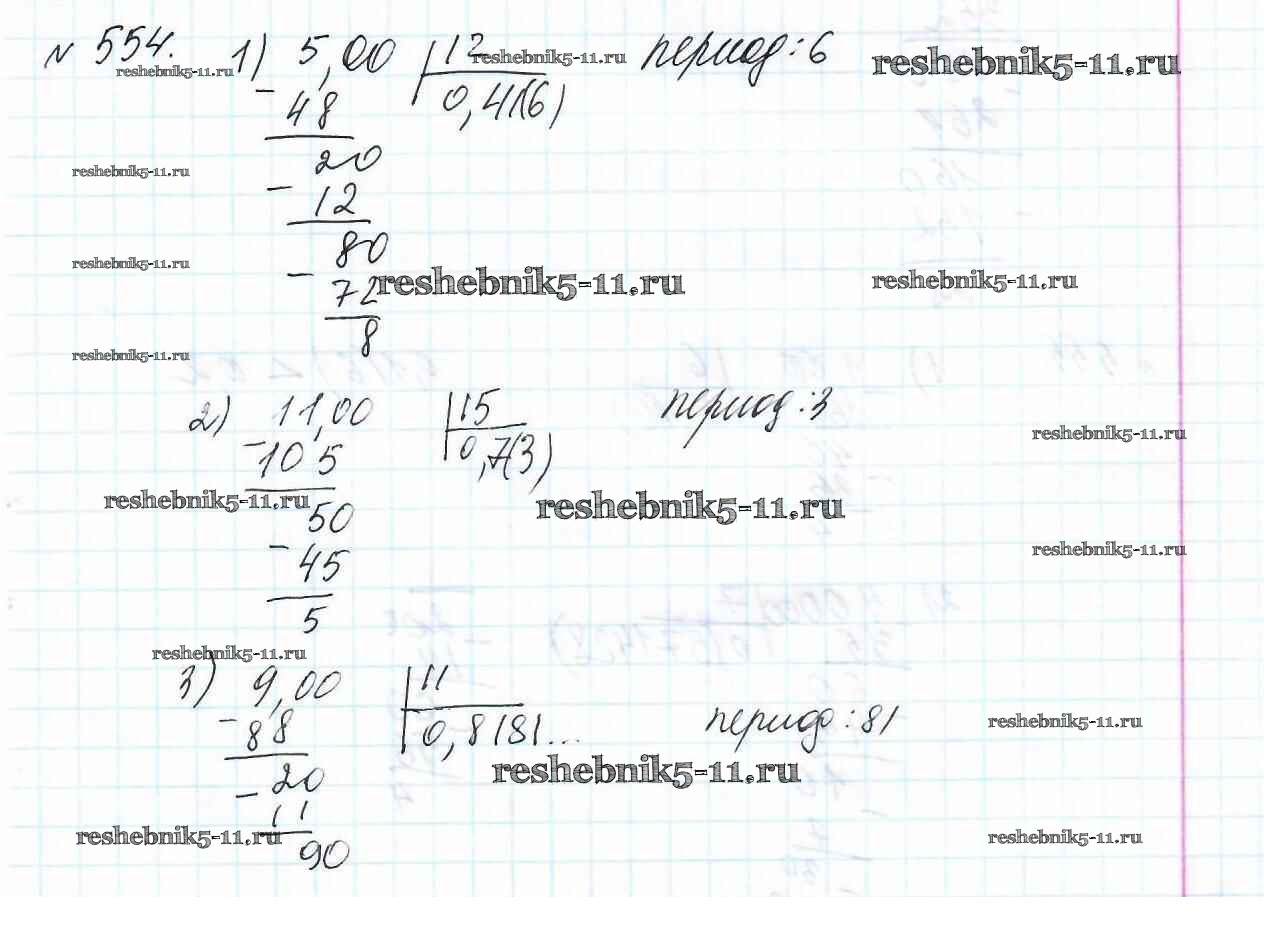 № 554. 1) 5,00 12 период: 6 reshebnik5-11.ru
reshebnik5-11.ru reshebnik5-11.ru
- 48 0,41(6)
20
reshebnik5-11.ru
- 12
80
reshebnik5-11.ru
- 72 reshebnik5-11.ru reshebnik5-11.ru
8
reshebnik5-11.ru
2) 11,00 15 период: 3
reshebnik5-11.ru
- 10 5 0,7(3)
reshebnik5-11.ru reshebnik5-11.ru
50
reshebnik5-11.ru
- 45
5
reshebnik5-11.ru
3) 9,00 11
- 88 0,8181... период: 81 reshebnik5-11.ru
reshebnik5-11.ru
- 20
11
reshebnik5-11.ru reshebnik5-11.ru
90